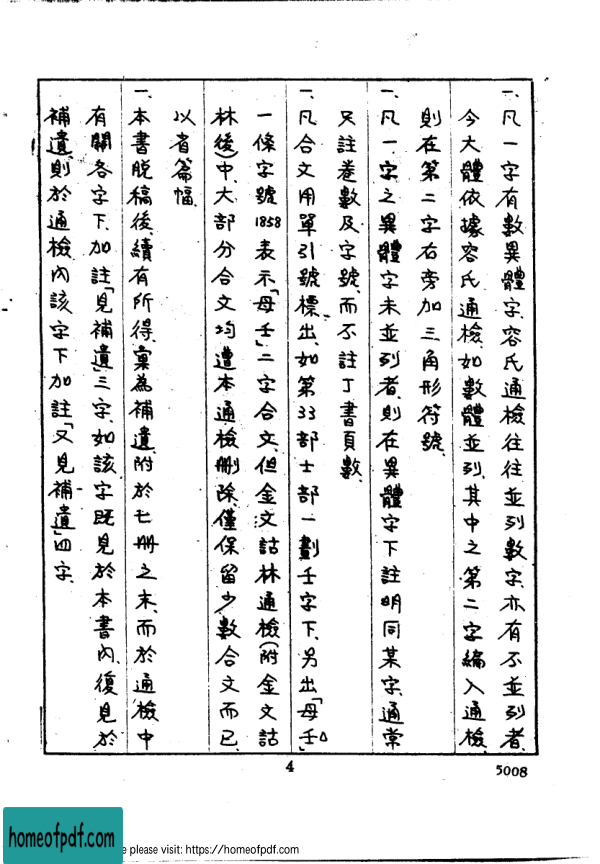 一、凡一字有數異體字、容氏通檢往往並列數字、亦有不並列者、
今大體依據容氏通檢、如數體並列、其中之第二字編入通檢、
則在第二字右旁加三角形符號、
一、凡一字之異體字未並列者、則在異體字下註明同某字、通常
只註卷數及字號、而不註丁書頁數、
一、凡合文用單引號標出、如第33部士部一劃壬字下、另出「母壬」△
一條字號1858表示「母壬」二字合文、但金文詁林通檢(附金文詁
林後)中、大部分合文均遭本通檢刪除、僅保留少數合文而已、
以省篇幅、
一、本書脱稿後、續有所得、彙為補遺、附於七冊之末、而於通檢中
有關各字下、加註「見補遺」三字、如該字既見於本書內、復見於
補遺、則於通檢內該字下加註「又見補遺」四字、
4
5008
homeofpdf.com
e please visit: https://homeofpdf.com